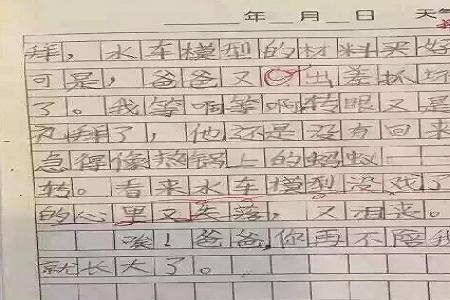 年 月 日 天气
拜，水车模型的材料买好
可是，爸爸又出差
了。我等啊等啊转眼又是
了，他还是没有回来
急得像热锅上的蚂蚁
转。看来水车模型没戏了
的心里又失落，又
唉！爸爸，你再不陪我
就长大了。